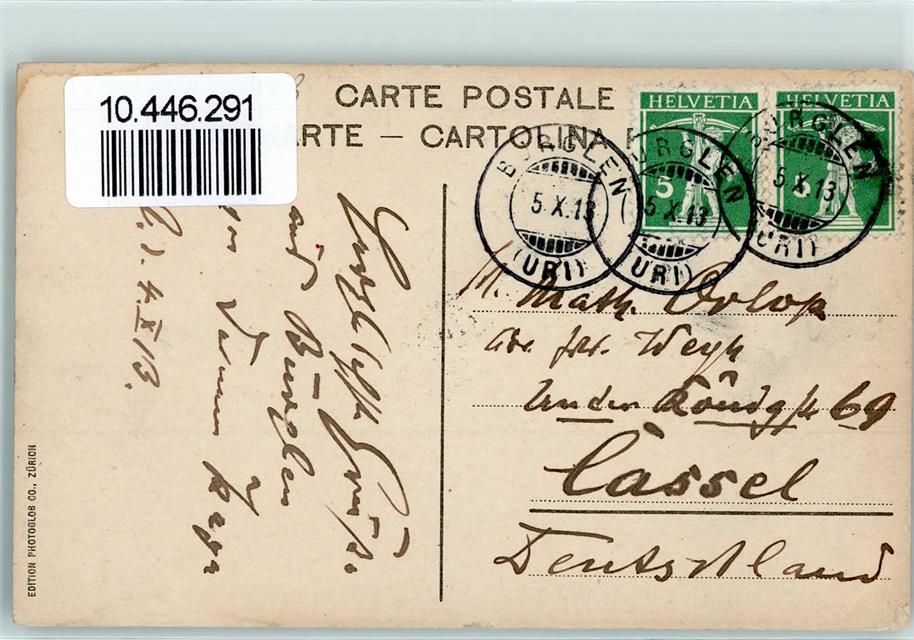 10.446.291
CARTE POSTALE
ARTE — CARTOLINA
HELVETIA
HELVETIA
5
5
BÜRGLEN
5.X.13
(URI)
BÜRGLEN
5.X.13
(URI)
BÜRGLEN
5.X.13
(URI)
M. Math. Orlop
Weyh
Untere Königstr 69
Cassel
Deutschland
Herzliche Grüße
aus Bürglen
von
d. 4.X.13.
EDITION PHOTOGLOB CO., ZÜRICH